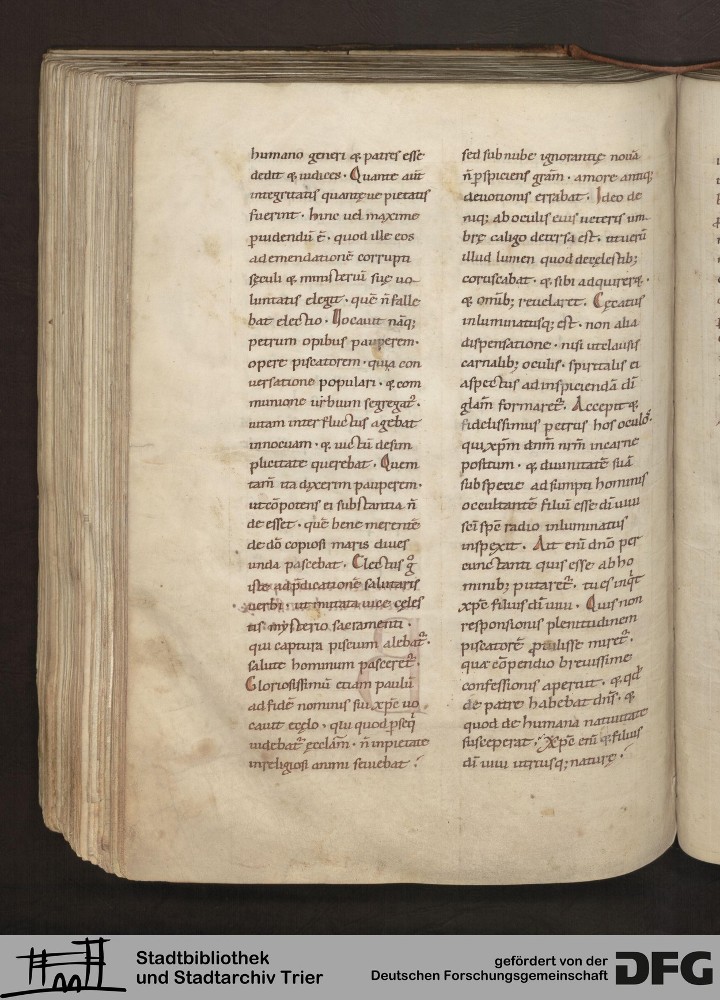 humano generi & patres esse
dedit & iudices. Quante aut̄
integritatis quanteue pietatis
fuerint. hinc uel maxime
puidendū ē. quod ille eos
ad emendationē corrupti
sęculi & ministeriū suę uo
luntatis elegit. quē n̄ falle
bat electio. Uocauit nāq;
petrum opibus pauperem.
opere piscatorem. quia con
uersatione populari. & com
munione urbium segregat᷑.
uitam inter fluctus agebat
innocuam. & uictū desim
plicitate querebat. Quem
tam̄ ita dixerim pauperem.
ut eōpotens ei substantia n̄
de esset. quē bene merente
de dō copiosi maris diues
unda pascebat. Electus g̊
iste ad p̄dicationē salutaris
uerbi. ut mutata uice celes
tis mysterio sacramenti.
qui captura piscium alebat᷑.
salute hominum pasceret᷑.
Gloriosissimū etiam paulū
ad fidē nominis sui xp̄e uo
cauit ecęlo. qui quod pseq̄
uidebat᷑ ecclām. n̄ inpietate
inreligiosi animi seuiebat.
sed sub nube ignorantię nouā
n̄ pspiciens grām. amore antiq;
deuotionis errabat. Ideo de
niq; ab oculis eius ueteris um
brę caligo detersa est. ut uerū
illud lumen quod decęlestib;
coruscabat. & sibi adquireret.
& omīb; reuelaret. Cęcatus
inluminatusq; est. non alia
dispensatione. nisi ut clausis
carnalib; oculis. spiritalis ei
aspectus ad inspiciendā dī
glām formaret᷑. Accepit &
fidelissimus petrus hos oculos.
qui xp̄m dn̄m nr̄m incarne
positum. & diuinitatē suā
sub specie adsumpti hominis
occultantē filiū esse dī uiui
sc̄i sp̄e radio inluminatus
inspexit. Ait enī dn̄o per
cunctanti quis esse ab ho
minib; putaret᷑. tu es inq̄t
xp̄e filius dī uiui. Quis non
responsionis plenitudinem
piscatorē ptulisse miret᷑.
qua cōpendio breuissime
confessionis aperuit. & qd̄
de patre habebat dn̄s. &
quod de humana natiuitate
susceperat. Xp̄e enī & filius
dī uiui utriusq; naturę.
Stadtbibliothek
und Stadtarchiv Trier
gefördert von der
Deutschen Forschungsgemeinschaft
DFG